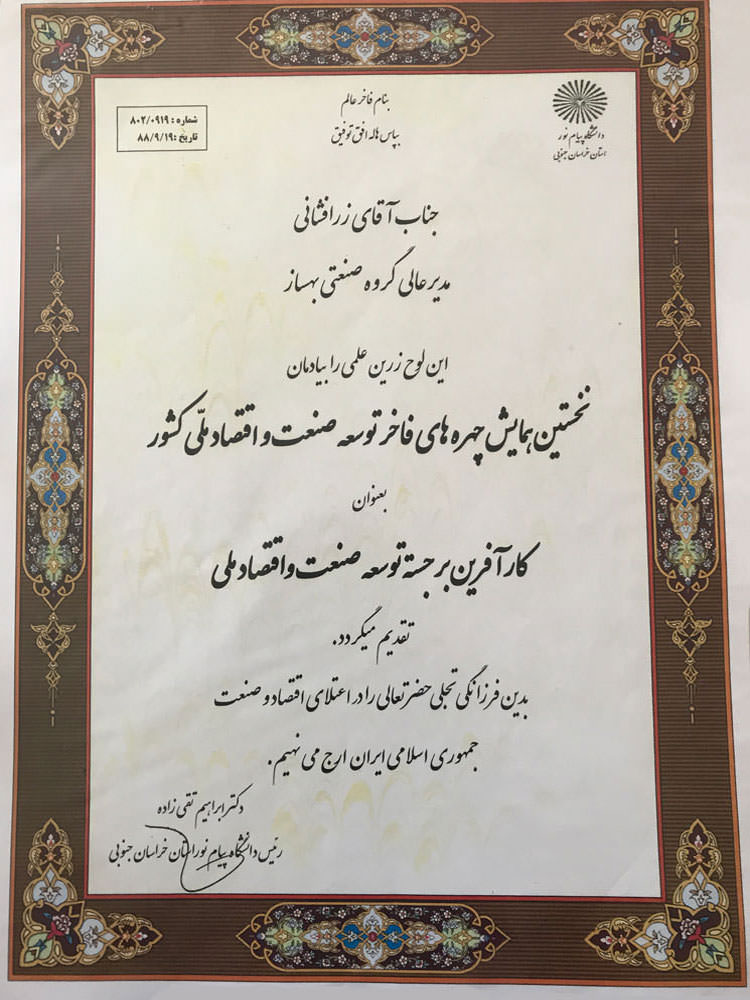 بنام فاخر عالم
بپاس هاله افق توفیق
دانشگاه پیام نور
استان خراسان جنوبی
شماره : ۸۰۲/۰۹۱۹
تاریخ : ۸۸/۹/۱۹
جناب آقای زرافشانی
مدیر عالی گروه صنعتی بهساز
این لوح زرین علمی را بیادمان
نخستین همایش چهره های فاخر توسعه صنعت و اقتصاد ملّی کشور
بعنوان
کارآفرین برجسته توسعه صنعت و اقتصاد ملی
تقدیم میگردد.
بدین فرزانگی تجلی حضرتعالی را در اعتلای اقتصاد و صنعت
جمهوری اسلامی ایران ارج می نهیم.
دکتر ابراهیم تقی زاده
رئیس دانشگاه پیام نور استان خراسان جنوبی